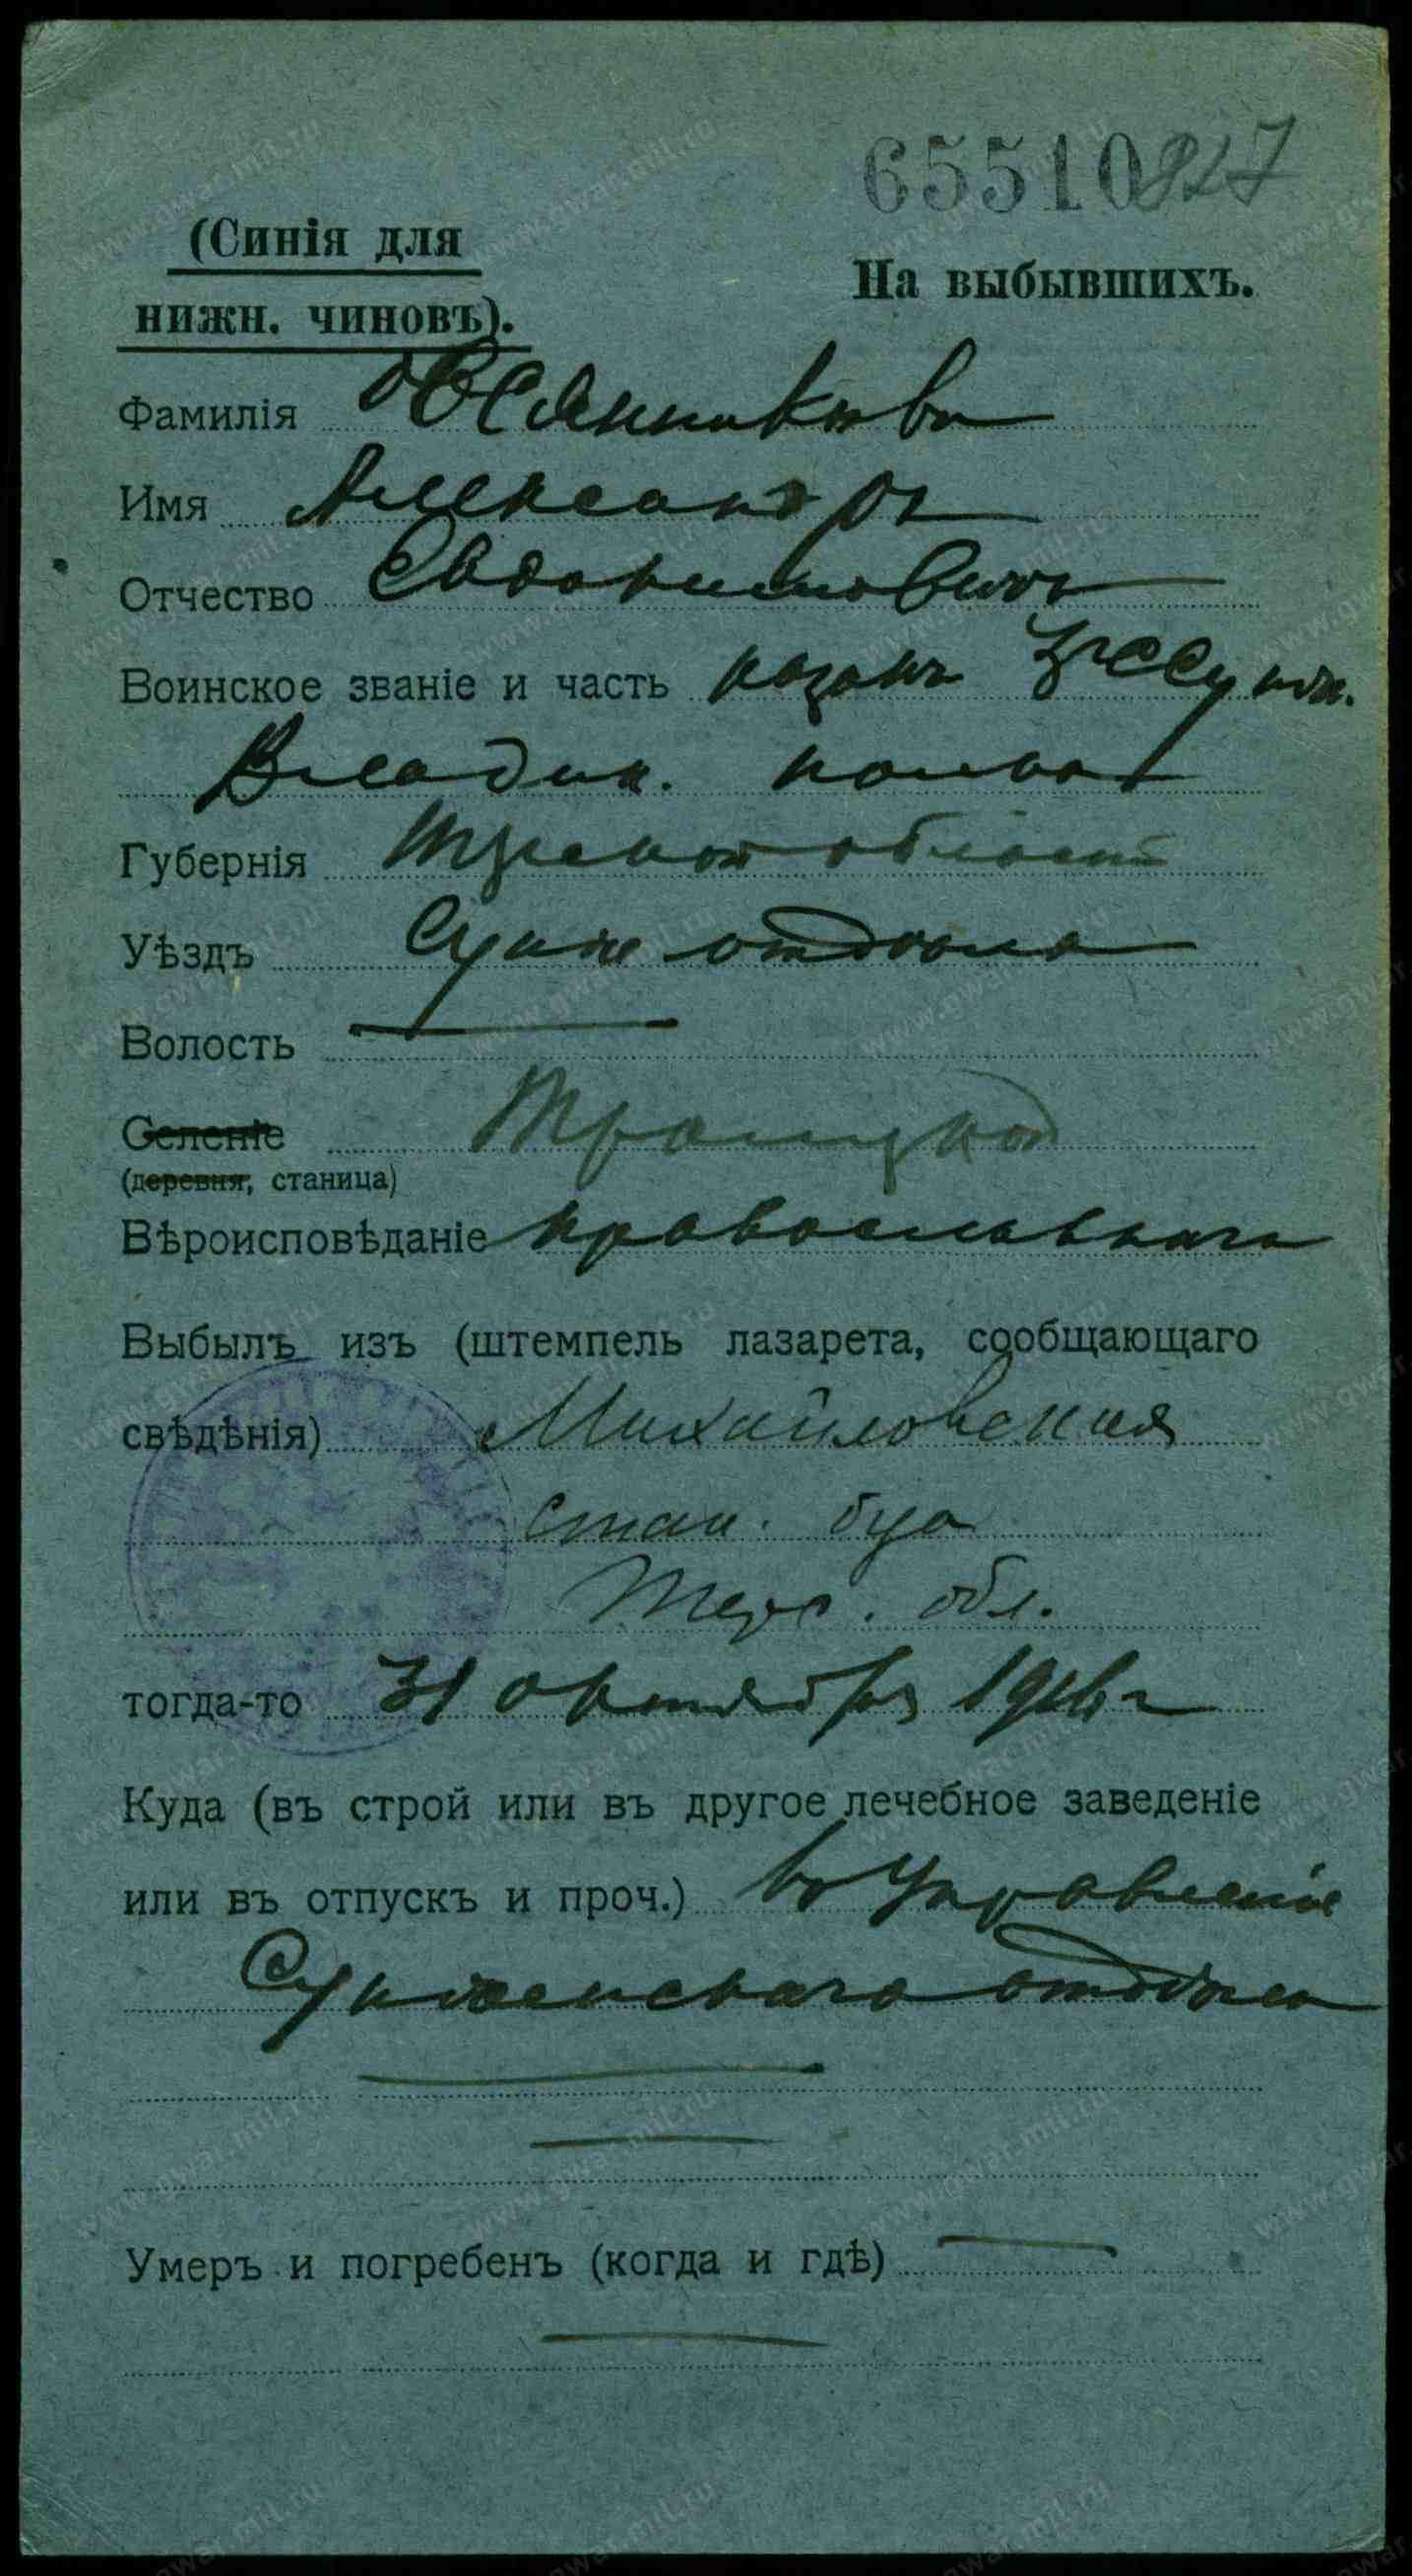 65510 827
(Синія для
нижн. чиновъ).
На выбывшихъ.
Фамилія Овсянниковъ
Имя Александръ
Отчество Евдокимовичъ
Воинское званіе и часть казакъ 3го Сунж.
Владик. полка
Губернія Терской области
Уѣздъ Сунж отдѣла
Волость
Селеніе Троицкой
(деревня, станица)
Вѣроисповѣданіе православнаго
Выбылъ изъ (штемпель лазарета, сообщающаго
свѣдѣнія) Михайловская
стан.
Терс. обл.
тогда-то 31 октября 1916 г
Куда (въ строй или въ другое лечебное заведеніе
или въ отпускъ и проч.) въ Управленіе
Сунженскаго отдѣла
Умеръ и погребенъ (когда и гдѣ)
www.gwar.mil.ru